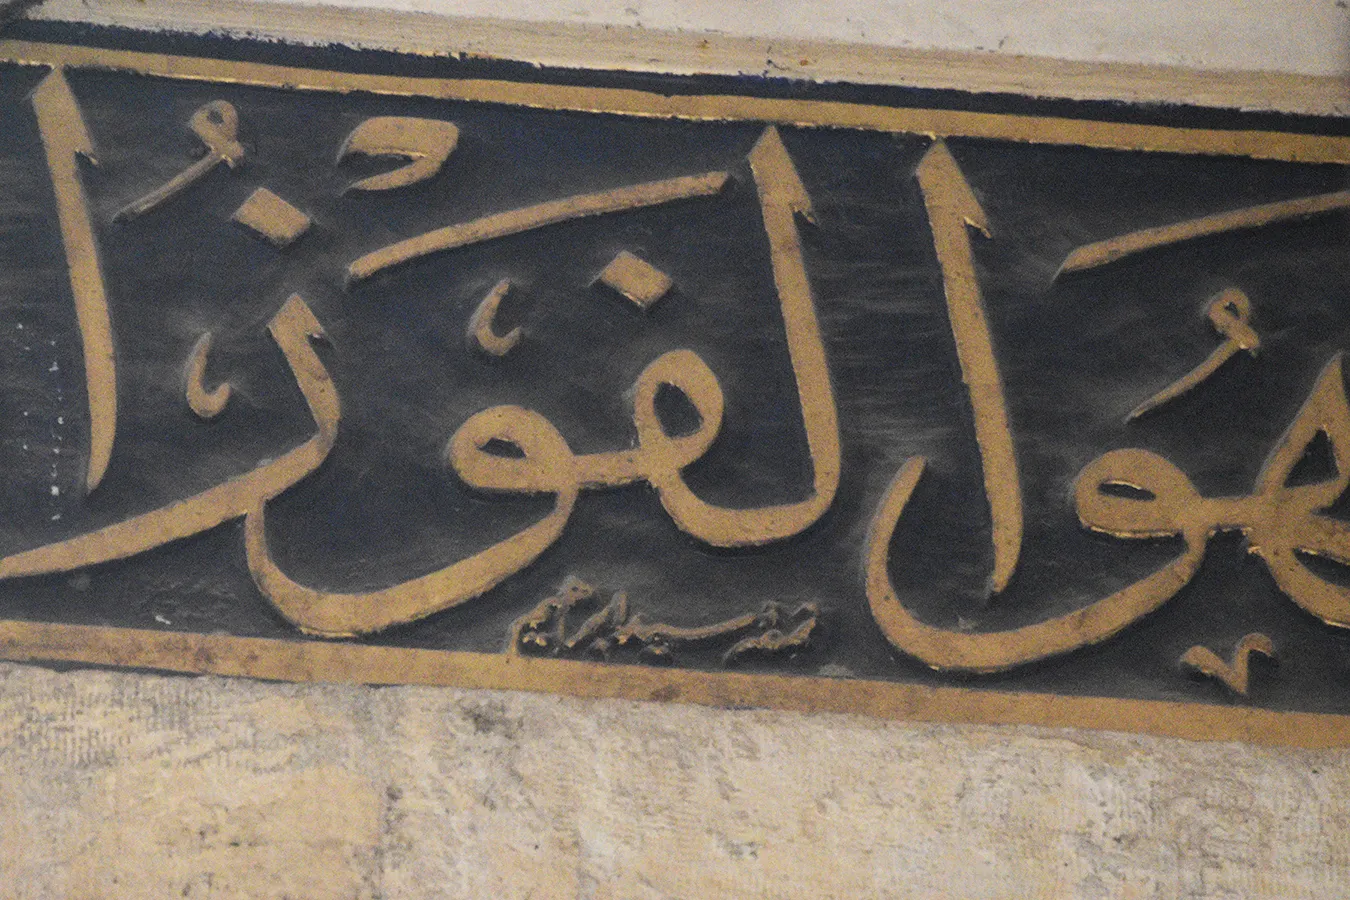 هُوَ الفَوْزُ ا